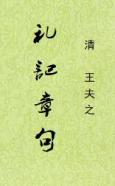 礼記章句
清 王夫之